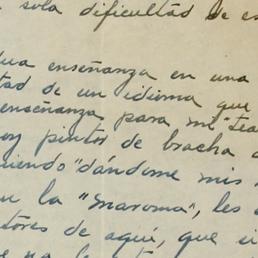 sola dificultad de es
ua enseñanza en una
tad de un idioma que
enseñanza para mi "tea
oy pintor de brocha
uiendo "dándome mis
la "maroma", les
tores de aquí, que si